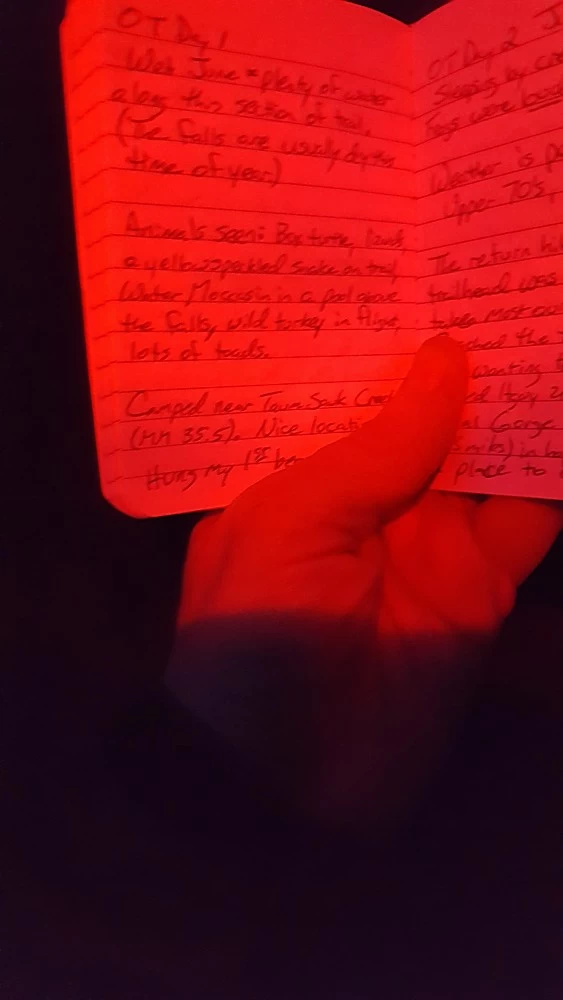 OT Day 1
Wet June = plenty of water
along this section of trail.
(The falls are usually dry this
time of year)
Animals seen: Box turtle, lizards,
a yellow speckled snake on trail
Water Moccasin in a pool above
the falls, wild turkey in flight,
lots of toads.
Camped near Taum Sauk Creek
(MM 35.5). Nice locati
Hung my 1st be
OT Day 2
Sleeping by
frogs were
Weather is
upper 70's,
The return hi
trailhead was
takes most
the
wanting
Hwy
Gorge
mile) in
place to